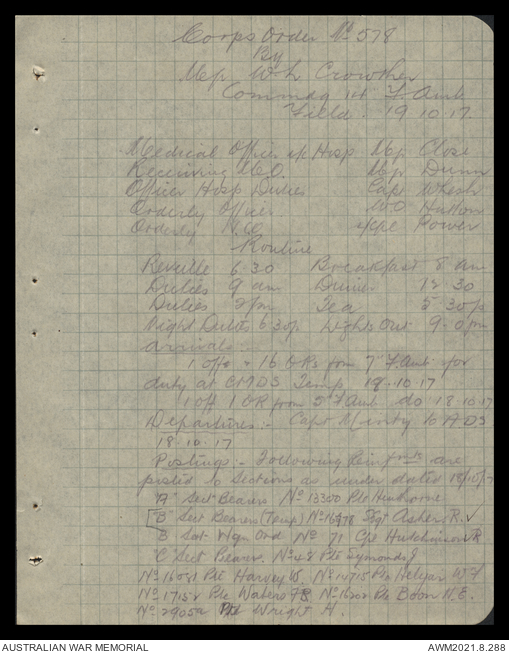 Corps Order No 578
By
Maj W L Crowther
Commdg 14 F Amb
Field. 19.10.17.
Medical Officer i/c Hosp Maj Close
Receiving M.O. Maj Dunn
Officer Hosp Duties Capt
Orderly Officer WO Hutton
Orderly NCO Power
Routine
Reveille 6.30 Breakfast 8 am
Duties 9 am Dinner 12.30
Duties 2pm Tea 5.30p
Night Duties 6.30p Lights Out 9.0 pm
Arrivals:-
1 off & 16 ORs from 7" F. Amb for
duty at CMDS Temp 18.10.17
1 off 1 OR from 5" F Amb do 18.10.17
Departures:- Capt Minty to ADS
18.10.17
Postings:- Following Reinfmts are
posted to Sections as under dated 18/10/17
"A" Sect Bearers No 13300 Pte
"B" Sect Bearers (Temp) Sgt Asher R. ✓
B Sat. Wgn. Ord No 71 Cpl Hutchinson R
"C" Sect Bearer. No 48 Pte Symonds J
Pte Harvey W. No 14715 Pte Helyar W J
Pte Waters F No 16202 Pte Boon N.E.
No 2905a Pte Wright H.
AUSTRALIAN WAR MEMORIAL
AWM2021.8.288